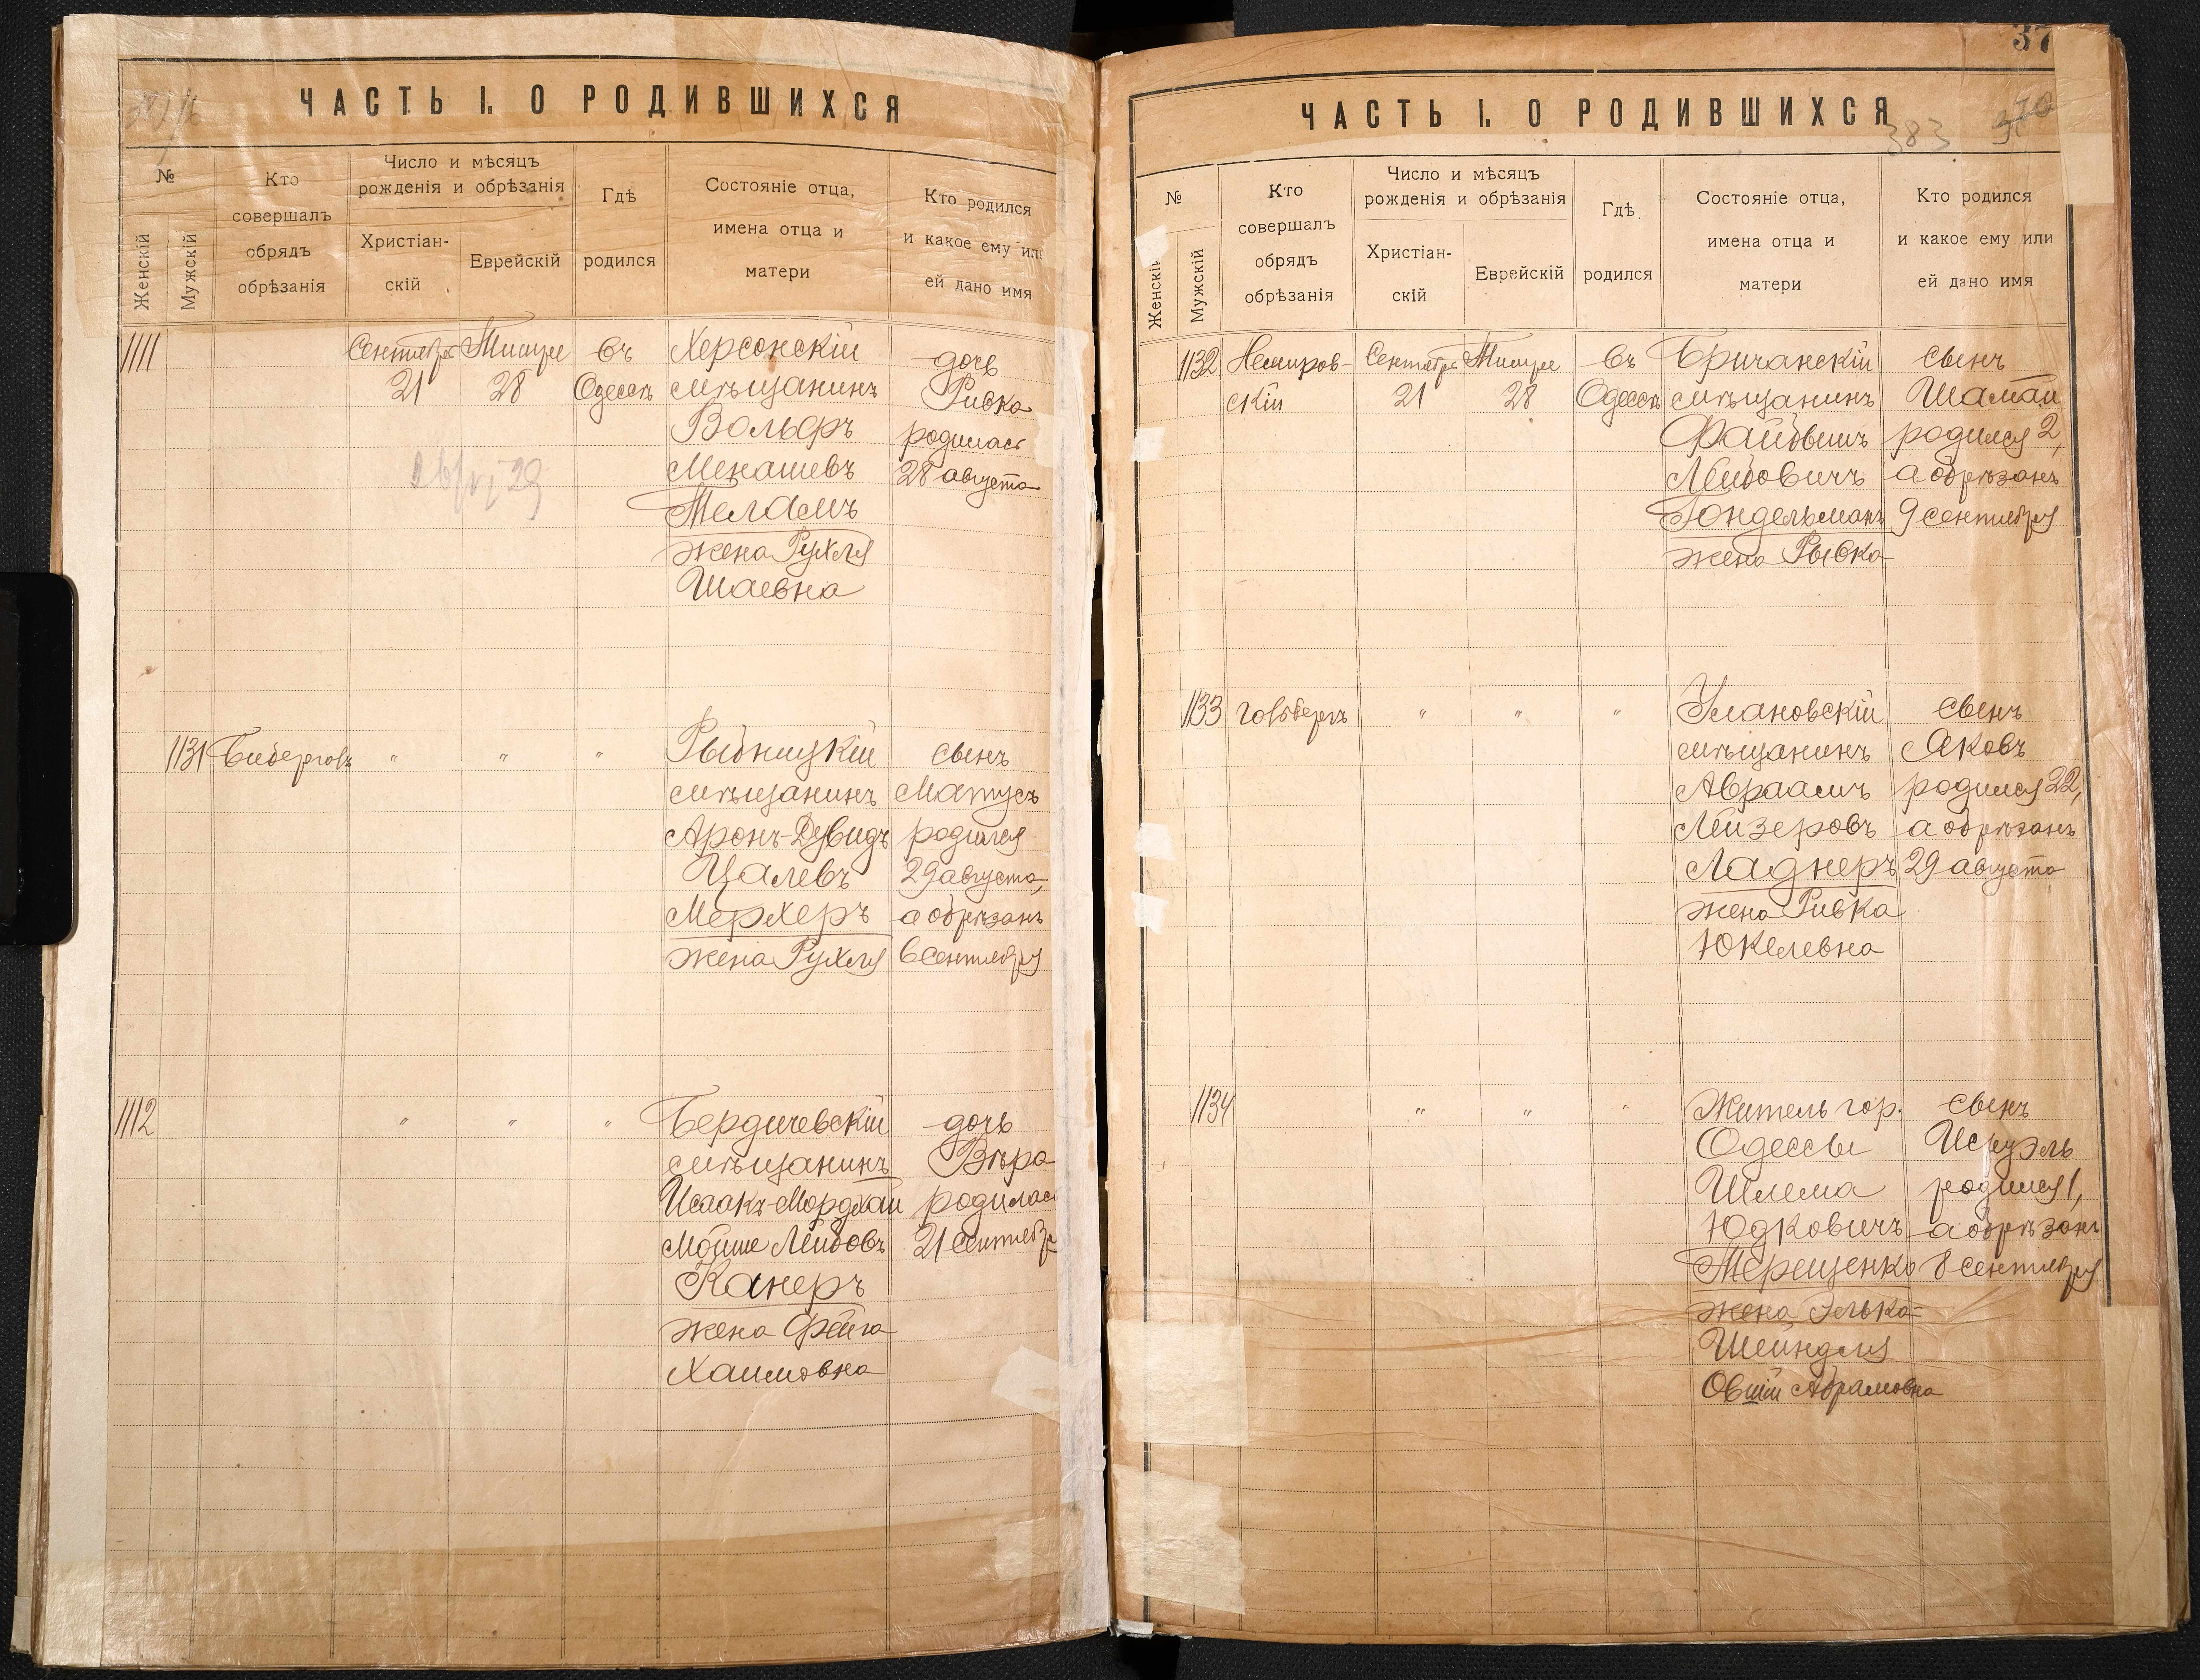 ЧАСТЬ I. О РОДИВШИХСЯ
№
Женскій
Мужскій
Кто
совершалъ
обрядъ
обрѣзанія
Число и мѣсяцъ
рожденія и обрѣзанія
Христіан-
скій
Еврейскій
Гдѣ
родился
Состояніе отца,
имена отца и
матери
Кто родился
и какое ему или
ей дано имя
1111
Сентября
21
Тишре
28
въ
Одессѣ
Херсонскій
мѣщанинъ
Вольфъ
Менашевъ
Теламъ
жена Рухля
Шаевна
дочь
Ривка
родилась
28 августа
1131
"
"
"
Рыбницкій
мѣщанинъ
Аронъ-Дувидъ
Цалевъ
Мерхеръ
жена Рухля
сынъ
Матусъ
родился
29 августа,
а обрѣзанъ
6 сентября
1112
"
"
"
Бердичевскій
мѣщанинъ
Исаакъ-Мордхай
Мойше Лейбовъ
Канеръ
жена Фейга
Хаимовна
дочь
Вѣра
родилась
21 сентября
37
ЧАСТЬ I. О РОДИВШИХСЯ
383
№
Женскій
Мужскій
Кто
совершалъ
обрядъ
обрѣзанія
Число и мѣсяцъ
рожденія и обрѣзанія
Христіан-
скій
Еврейскій
Гдѣ
родился
Состояніе отца,
имена отца и
матери
Кто родился
и какое ему или
ей дано имя
1132
Немиров-
скій
Сентября
21
Тишре
28
въ
Одессѣ
Бричанскій
мѣщанинъ
Файбишъ
Лейбовичъ
Гондельманъ
жена Рывка
сынъ
Шамай
родился 2,
а обрѣзанъ
9 сентября
1133
Гольбергъ
"
"
"
Улановскій
мѣщанинъ
Авраамъ
Лейзеровъ
Ладнеръ
жена Ривка
Юкелевна
сынъ
Яковъ
родился 22,
а обрѣзанъ
29 августа
1134
"
"
"
Житель гор.
Одессы
Шлема
Юдковичъ
Терещенко
жена Элька-
Шейндля
Абрамовна
сынъ
Исруэль
родился 1,
а обрѣзанъ
8 сентября